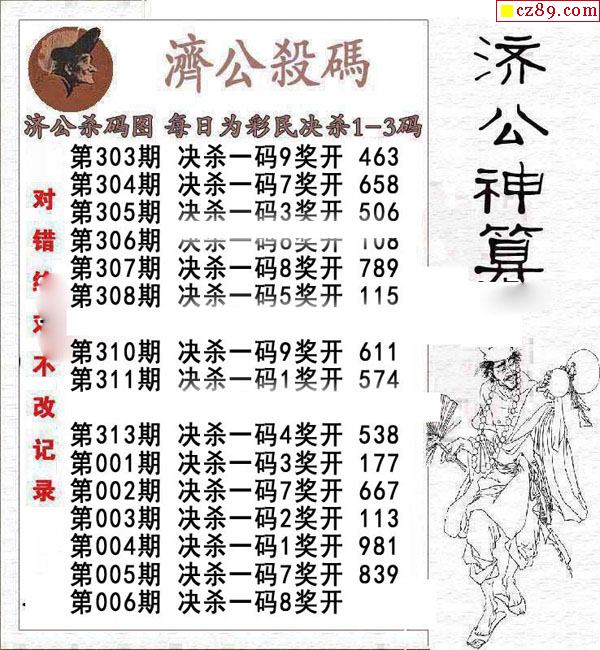 cz89.com
濟公殺碼
济公神算
济公杀码图 每日为彩民决杀1-3码
第303期 决杀一码9奖开 463
第304期 决杀一码7奖开 658
第305期 决杀一码3奖开 506
第306期 决杀一码 奖开 108
第307期 决杀一码8奖开 789
第308期 决杀一码5奖开 115
第310期 决杀一码9奖开 611
第311期 决杀一码1奖开 574
第313期 决杀一码4奖开 538
第001期 决杀一码3奖开 177
第002期 决杀一码7奖开 667
第003期 决杀一码2奖开 113
第004期 决杀一码1奖开 981
第005期 决杀一码7奖开 839
第006期 决杀一码8奖开
对错 不改记录